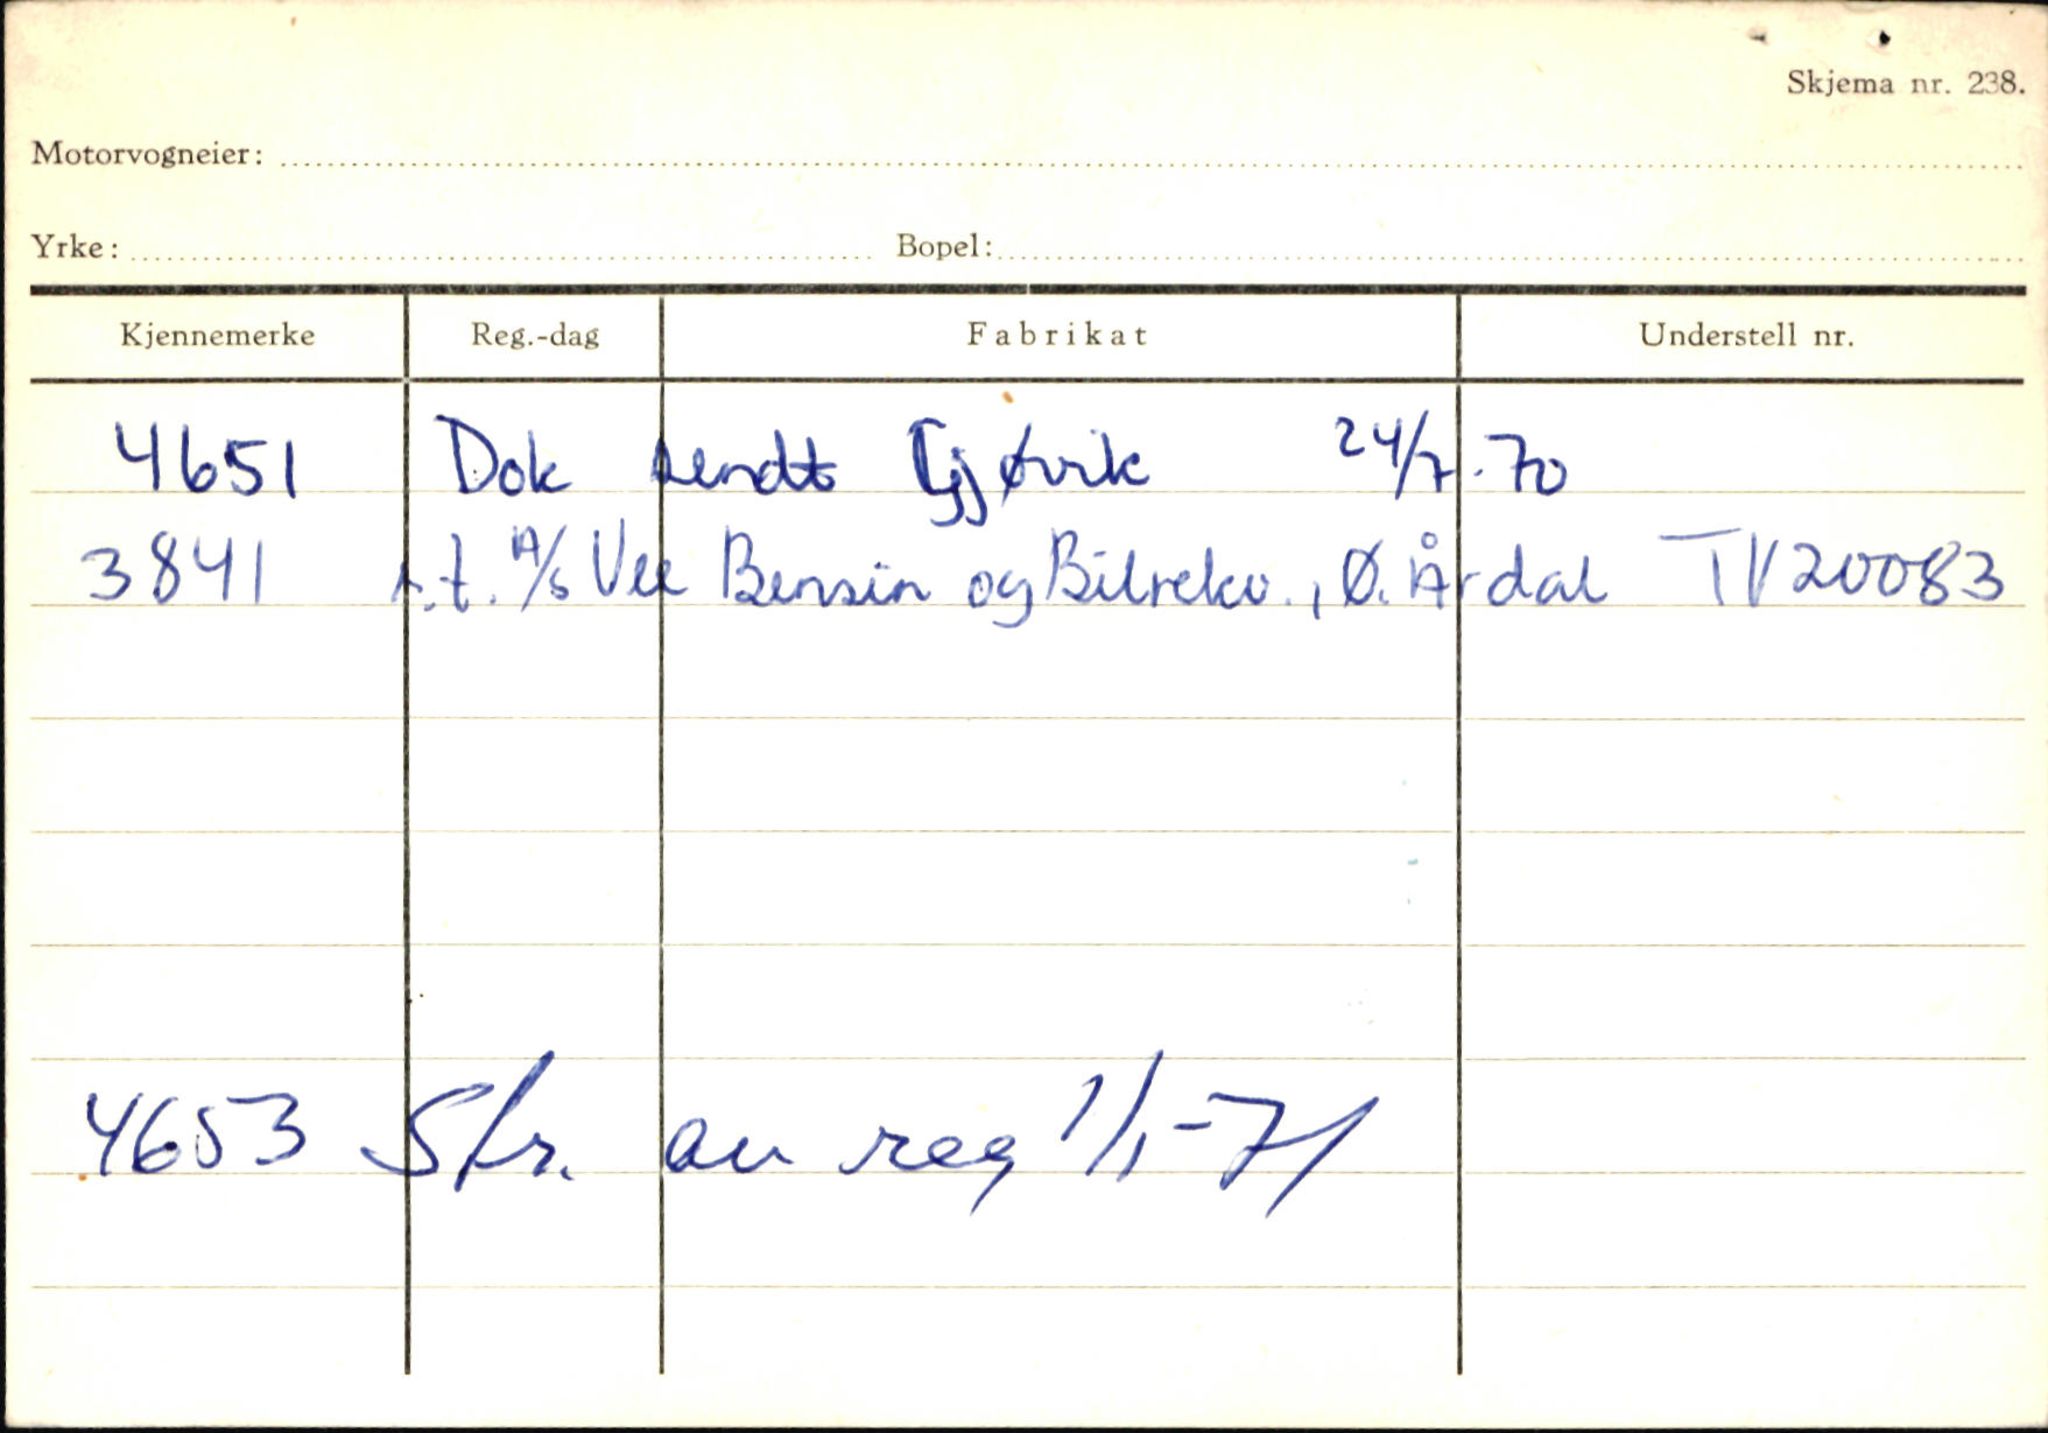 Skjema nr. 238.
Motorvogneier:
Yrke: Bopel:
Kjennemerke Reg.-dag Fabrikat Understell nr.
4651 Dok sendt Gjøvik 24/7.70
3841 r.t. A/S Vee Bensin og Bilrekv., Ø. Årdal TV20083
4653 Str. av reg 1/1-71